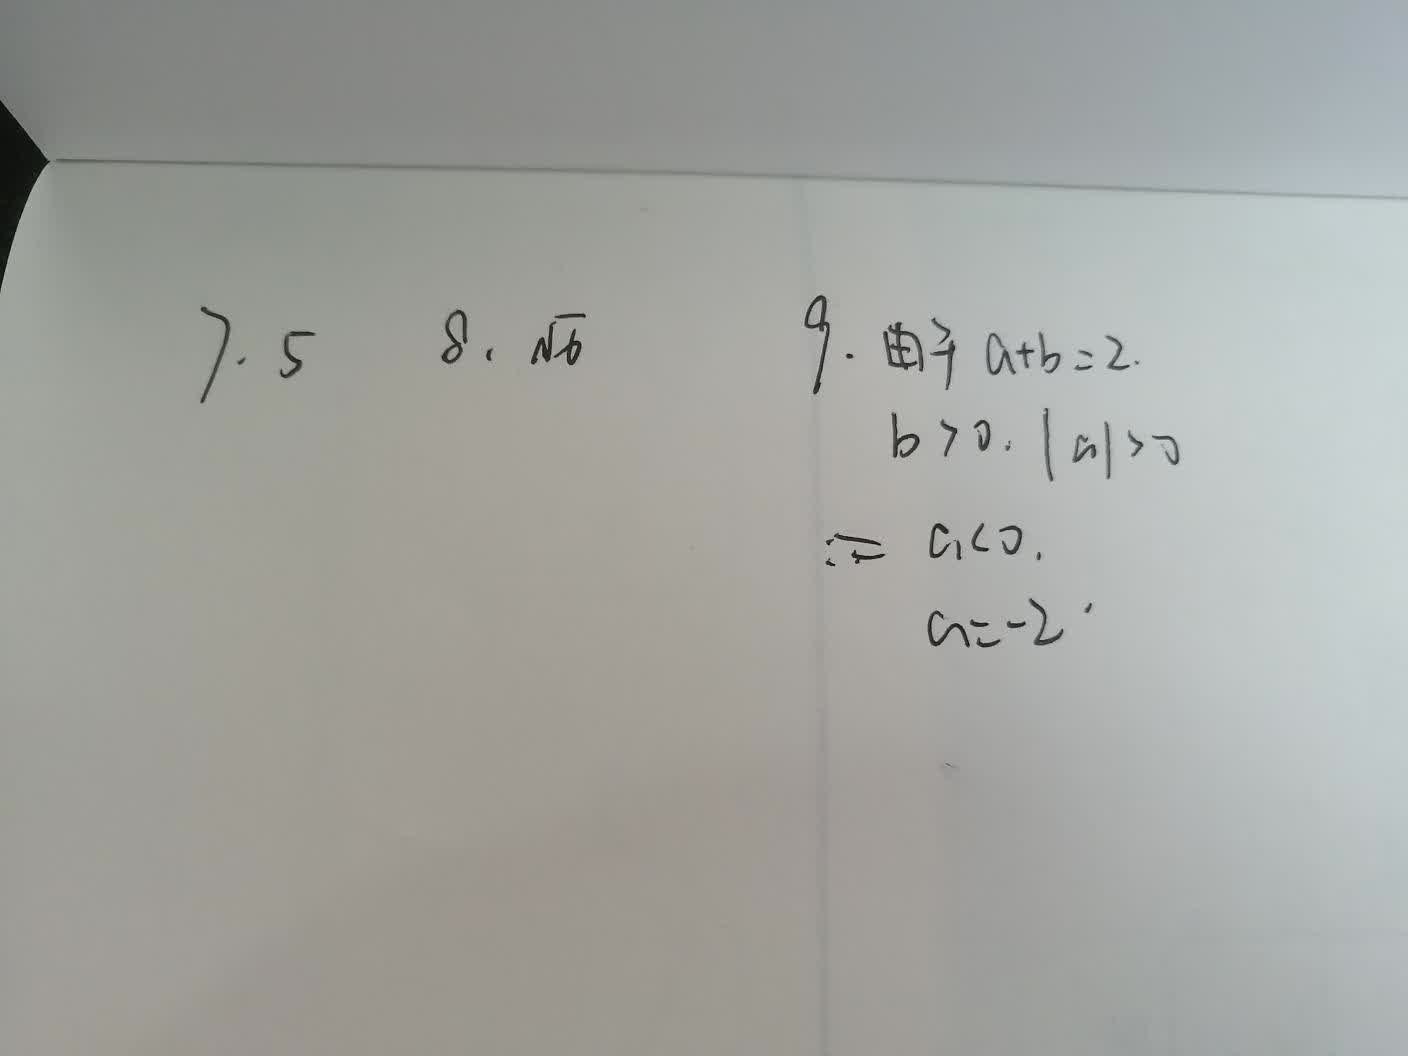 7. 5
8. √6
9. 由于 a+b=2.
b>0. |a|>0
∴ a<0.
a=-2